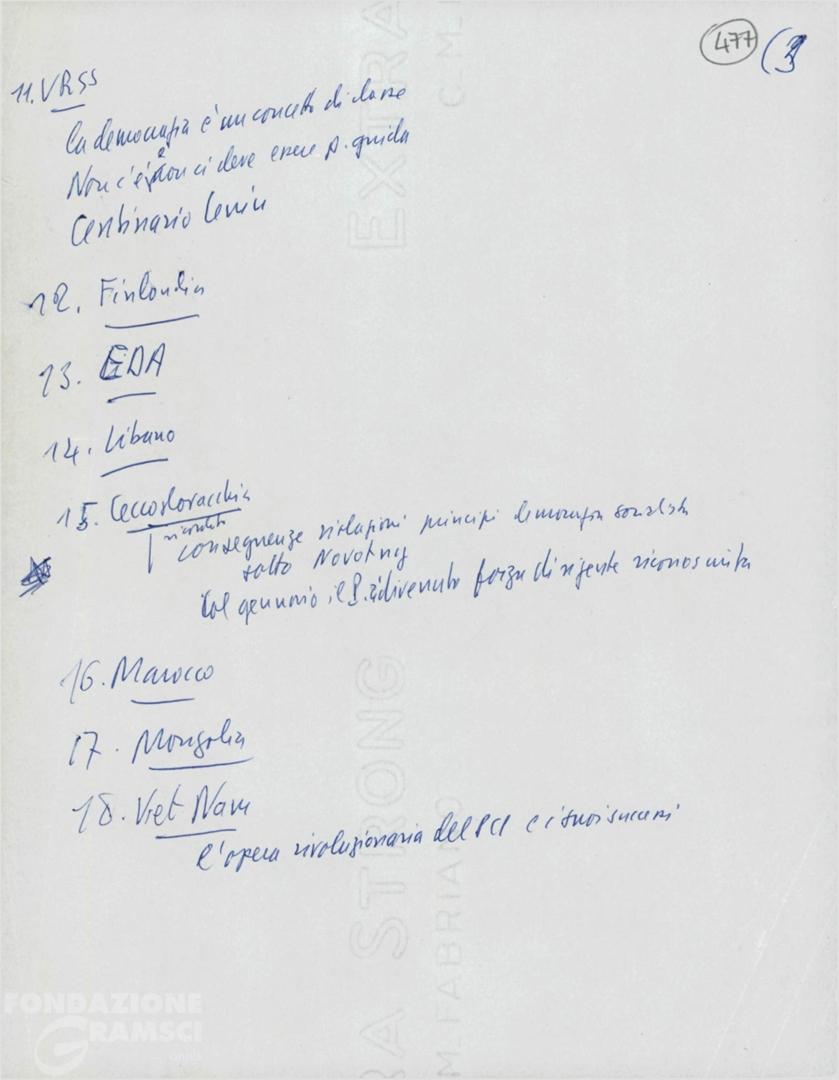 477 (3
11. URSS
la democrazia è un concetto di classe
Non c'è e non ci deve essere p. guida
Centenario Lenin
12. Finlandia
13. EDA
14. Libano
15. Cecoslovacchia
ricordato
conseguenze violazioni principi democrazia socialista
sotto Novotny
Col gennaio il P. è divenuto forza dirigente riconosciuta
16. Marocco
17. Mongolia
18. Viet Nam
l'opera rivoluzionaria del PCI e i suoi successi
EXTRA STRONG
C. M. FABRIANO
FONDAZIONE
GRAMSCI